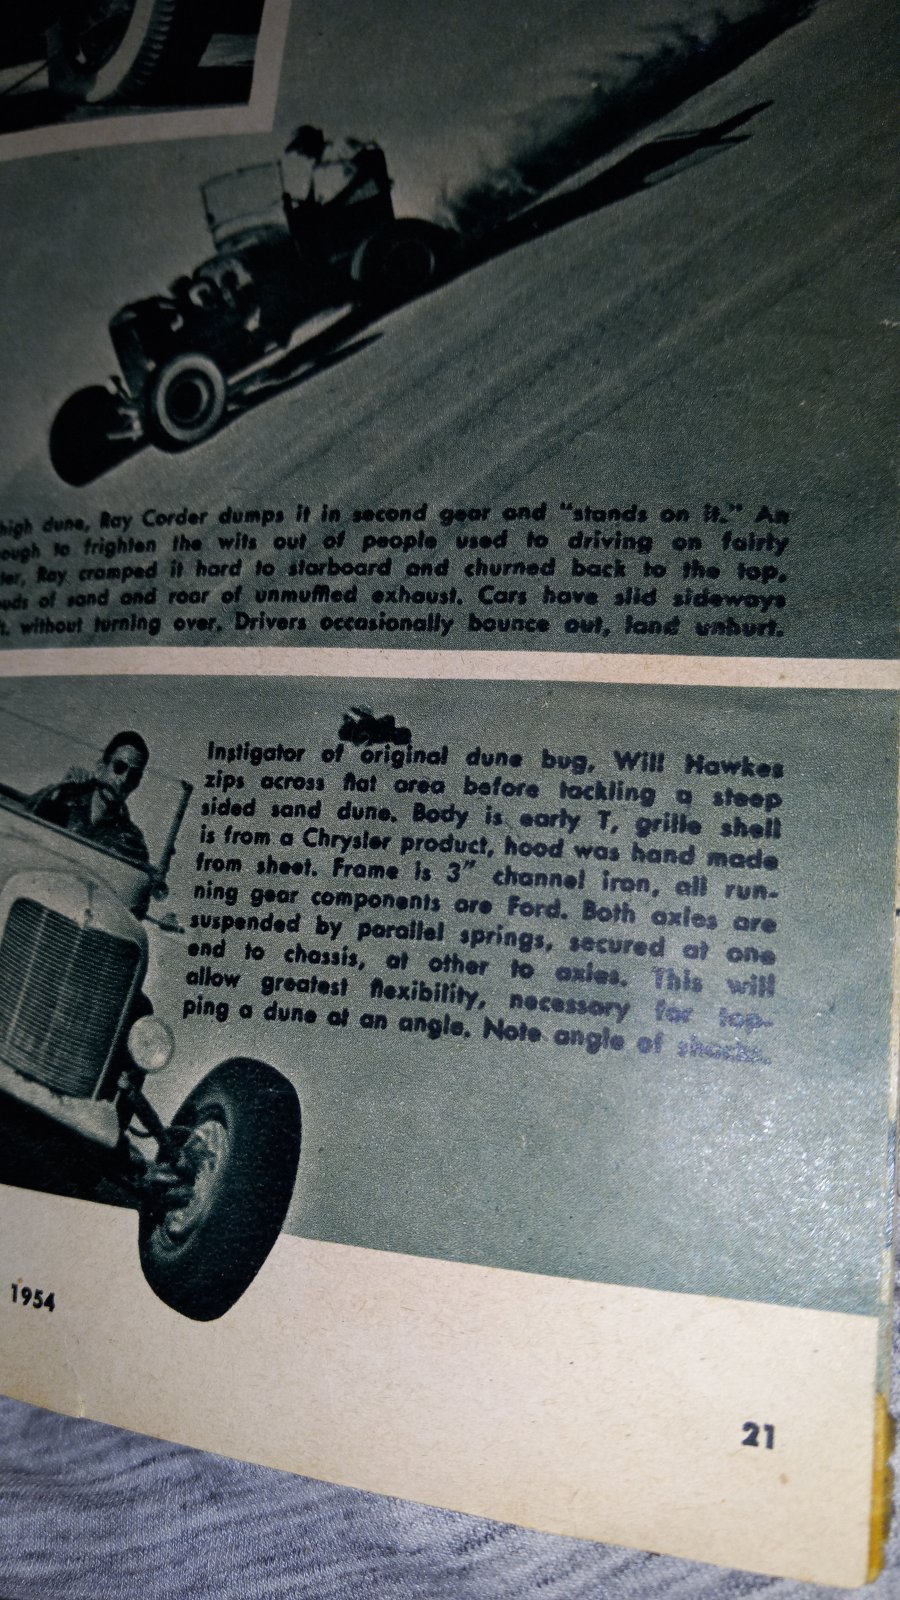 high dune, Ray Corder dumps it in second gear and "stands on it." An
ough to frighten the wits out of people used to driving on fairly
ter, Ray cramped it hard to starboard and churned back to the top.
uds of sand and roar of unmuffled exhaust. Cars have slid sideways
t. without turning over. Drivers occasionally bounce out, land unhurt.
Instigator of original dune bug, Will Hawkes
zips across flat area before tackling a steep
sided sand dune. Body is early T, grille shell
is from a Chrysler product, hood was hand made
from sheet. Frame is 3" channel iron, all run-
ning gear components are Ford. Both axles are
suspended by parallel springs, secured at one
end to chassis, at other to axles. This will
allow greatest flexibility, necessary for top-
ping a dune at an angle. Note angle of shocks.
1954
21